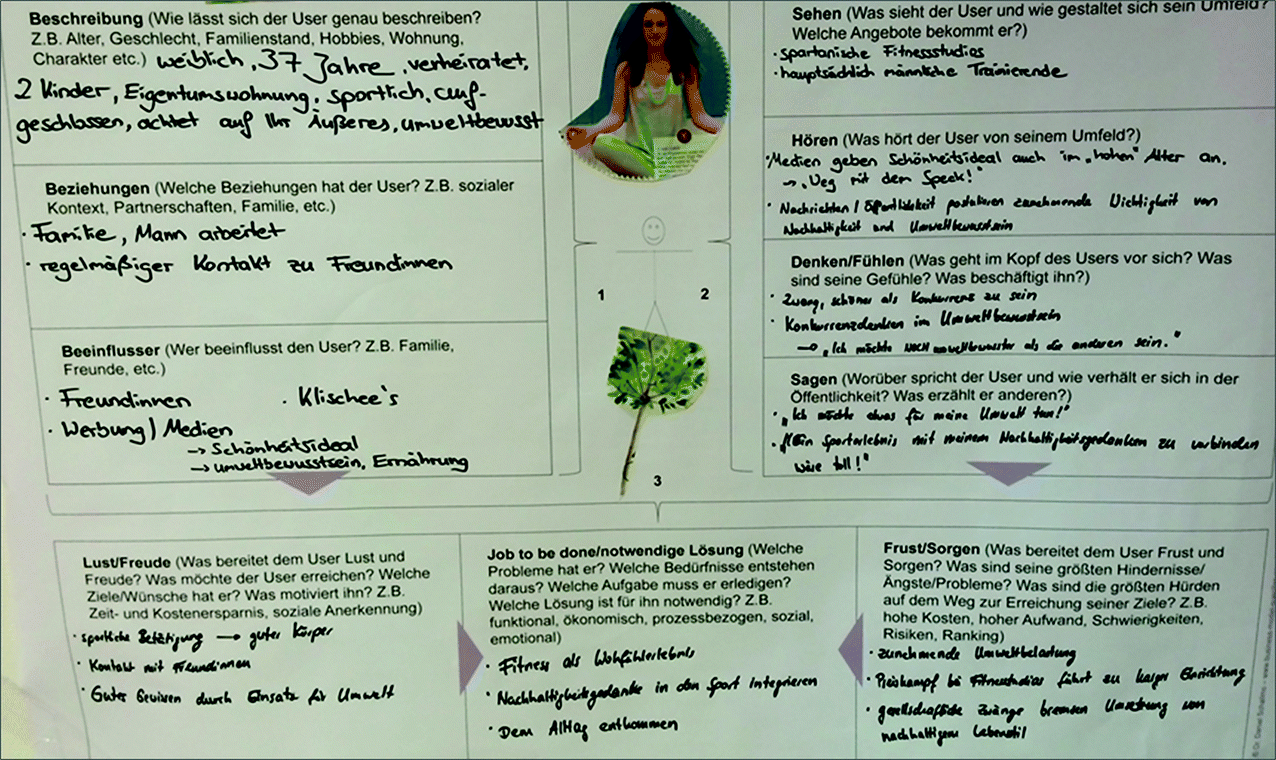 Beschreibung (Wie lässt sich der User genau beschreiben?
Z.B. Alter, Geschlecht, Familienstand, Hobbies, Wohnung,
Charakter etc.) weiblich, 37 Jahre, verheiratet,
2 Kinder, Eigentumswohnung, sportlich, auf-
geschlossen, achtet auf Ihr Äußeres, umweltbewusst
Beziehungen (Welche Beziehungen hat der User? Z.B. sozialer
Kontext, Partnerschaften, Familie, etc.)
· Familie, Mann arbeitet
· regelmäßiger Kontakt zu Freundinnen
Beeinflusser (Wer beeinflusst den User? Z.B. Familie,
Freunde, etc.)
· Freundinnen · Klischee's
· Werbung / Medien
→ Schönheitsideal
→ umweltbewusstsein, Ernährung
1
2
3
Sehen (Was sieht der User und wie gestaltet sich sein Umfeld?
Welche Angebote bekommt er?)
· spartanische Fitnessstudios
· hauptsächlich männliche Trainierende
Hören (Was hört der User von seinem Umfeld?)
· Medien geben Schönheitsideal auch im „hohen" Alter an.
→ „Weg mit dem Speck!"
· Nachrichten / Öffentlichkeit postulieren zunehmende Wichtigkeit von
Nachhaltigkeit und Umweltbewusstsein
Denken/Fühlen (Was geht im Kopf des Users vor sich? Was
sind seine Gefühle? Was beschäftigt ihn?)
· Zwang, schöner als Konkurrenz zu sein
· Konkurrenzdenken im Umweltbewusstsein
→ „Ich möchte NOCH umweltbewusster als die anderen sein."
Sagen (Worüber spricht der User und wie verhält er sich in der
Öffentlichkeit? Was erzählt er anderen?)
· „Ich möchte etwas für meine Umwelt tun!"
· „Ein Sporterlebnis mit meinem Nachhaltigkeitsgedanken zu verbinden
wäre toll!"
Lust/Freude (Was bereitet dem User Lust und
Freude? Was möchte der User erreichen? Welche
Ziele/Wünsche hat er? Was motiviert ihn? Z.B.
Zeit- und Kostenersparnis, soziale Anerkennung)
· sportliche Betätigung → guter Körper
· Kontakt mit Freundinnen
· Guter Gewissen durch Einsatz für Umwelt
Job to be done/notwendige Lösung (Welche
Probleme hat er? Welche Bedürfnisse entstehen
daraus? Welche Aufgabe muss er erledigen?
Welche Lösung ist für ihn notwendig? Z.B.
funktional, ökonomisch, prozessbezogen, sozial,
emotional)
· Fitness als Wohlfühlerlebnis
· Nachhaltigkeitsgedanke in den Sport integrieren
· Dem Alltag entkommen
Frust/Sorgen (Was bereitet dem User Frust und
Sorgen? Was sind seine größten Hindernisse/
Ängste/Probleme? Was sind die größten Hürden
auf dem Weg zur Erreichung seiner Ziele? Z.B.
hohe Kosten, hoher Aufwand, Schwierigkeiten,
Risiken, Ranking)
· zunehmende Umweltbelastung
· Preiskampf bei Fitnessstudios führt zu karger Einrichtung
· gesellschaftliche Zwänge bremsen Umsetzung von
nachhaltigem Lebensstil